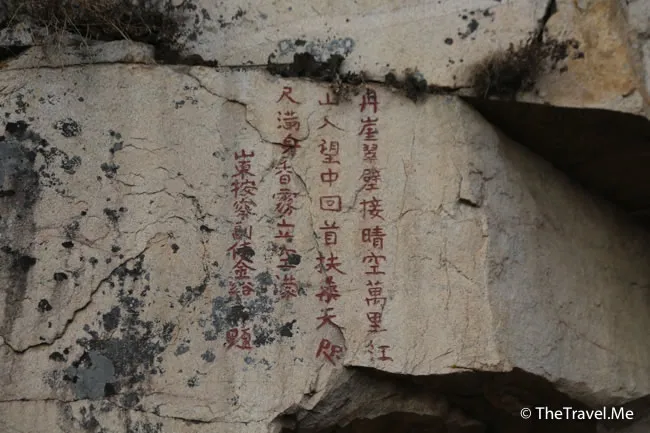 丹崖翠壁接晴空萬里紅
山入望中回首扶桑天咫
尺滿身香霧立空濛
山東按察副使金題
© TheTravel.Me